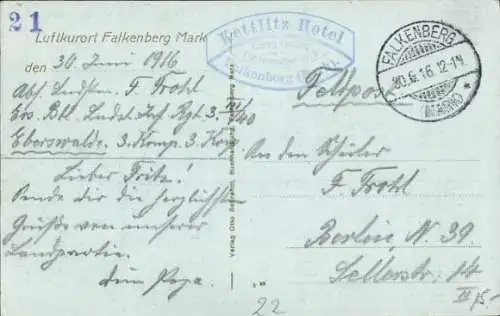 21
Luftkurort Falkenberg Mark
den 30. Juni 1916
Abs. Landstm. F. Frohl
Ers. Btl. Landst. Inf. Rgt. 3.
Eberswalde. 3. Komp. 3. Korp.
Lieber Fritz!
Sende dir die herzlichsten
Grüße von unserer
Landpartie.
dein Papa.
Verlag Otto
Kettlitz Hotel
Falkenberg (Mark).
FALKENBERG
30.6.16. 12-1N
(MARK)
Feldpost
An den Schüler
F. Frohl
Berlin, N. 39
Sellerstr. 14
22